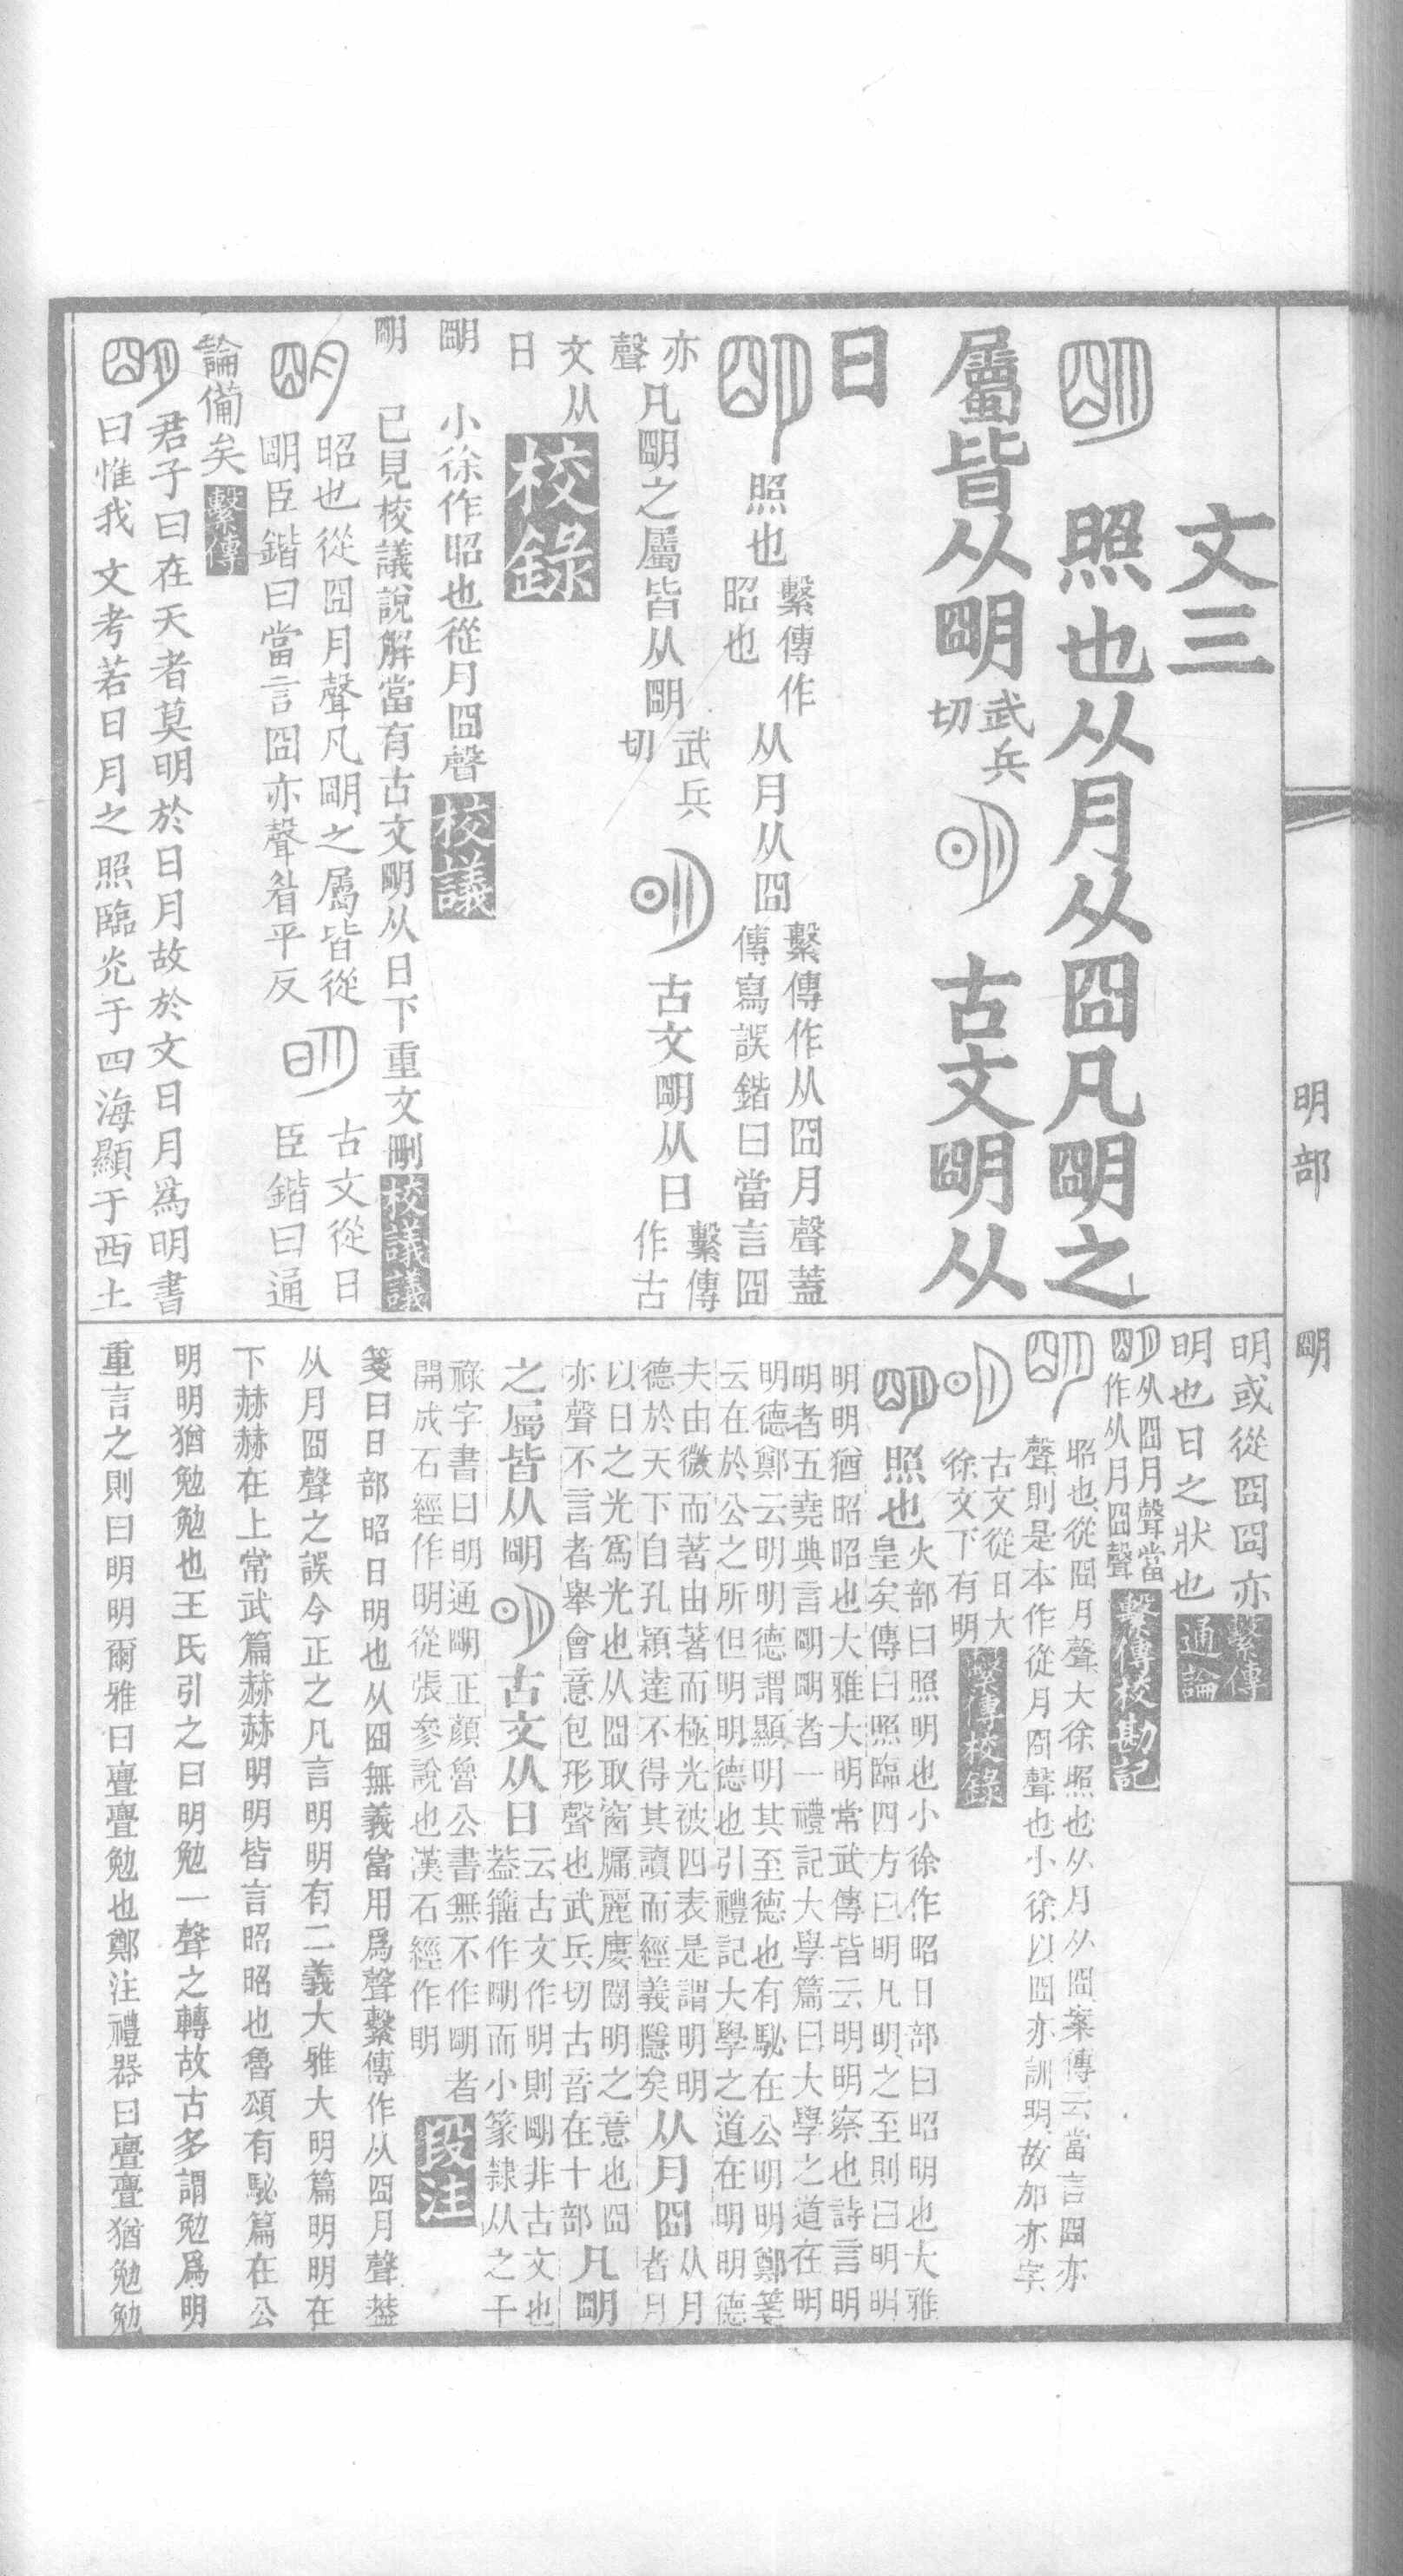 文三
照也从月从囧凡朙之
屬皆从朙武兵切 古文朙从
日
照也繫傳作昭也从月从囧繫傳作从囧月聲蓋傳寫誤鍇曰當言囧
亦聲凡朙之屬皆从朙武兵切 古文朙从日繫傳作古
文从日校錄
朙 小徐作昭也從月囧聲校議
朙 已見校議說解當有古文朙从日下重文刪校議議
昭也從囧月聲凡朙之屬皆從
朙臣鍇曰當言囧亦聲眉平反 古文從日臣鍇曰通
論備矣繫傳
君子曰在天者莫明於日月故於文日月爲明書
曰惟我文考若日月之照臨光于四海顯于西土
明或從囧囧亦
明也日之狀也繫傳通論
从囧月聲當作从月囧聲繫傳校勘記
昭也從囧月聲大徐照也从月从囧案傳云當言囧亦
聲則是本作從月囧聲也小徐以囧亦訓明故加亦字
古文從日大徐文下有明繫傳校錄
照也火部曰照明也小徐作昭日部曰昭明也大雅
皇矣傳曰照臨四方曰明凡明之至則曰明明
明明猶昭昭也大雅大明常武傳皆云明明察也詩言明
明者五堯典言朙朙者一禮記大學篇曰大學之道在明
明德鄭云明明德謂顯明其至德也有駜在公明明鄭箋
云在於公之所但明明德也引禮記大學之道在明明德
夫由微而著由著而極光被四表是謂明明
德於天下自孔穎達不得其讀而經義隱矣从月囧从月者月
以日之光爲光也从囧取窗牖麗廔闓明之意也囧
亦聲不言者舉會意包形聲也武兵切古音在十部凡朙
之屬皆从朙 古文从日云古文作明則朙非古文也
蓋籒作朙而小篆隸从之干
祿字書曰明通朙正顏魯公書無不作朙者
開成石經作明從張參說也漢石經作明段注
箋曰日部昭日明也从囧無義當用爲聲繫傳作从囧月聲葢
从月囧聲之誤今正之凡言明明有二義大雅大明篇明明在
下赫赫在上常武篇赫赫明明皆言昭昭也魯頌有駜篇在公
明明猶勉勉也王氏引之曰明勉一聲之轉故古多謂勉爲明
重言之則曰明明爾雅曰亹亹勉也鄭注禮器曰亹亹猶勉勉
明部 朙